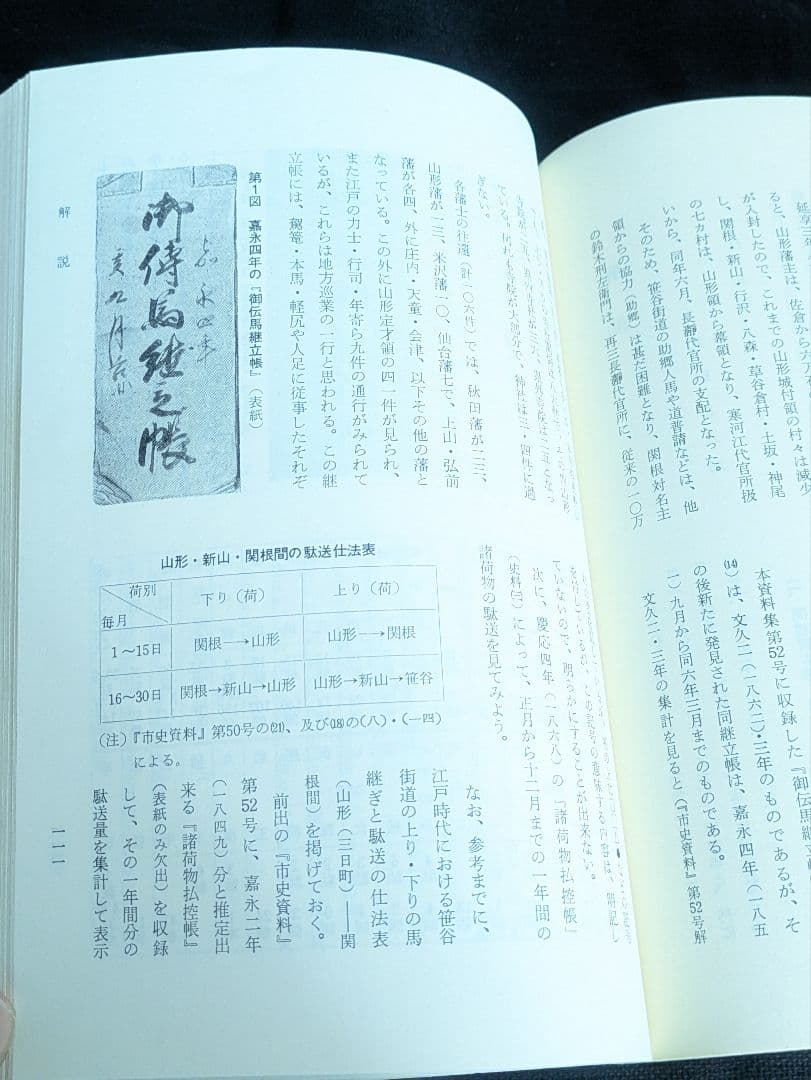 延享三
ると、山形藩主は、佐倉から六万
が入封したので、これまでの山形城付領の村々は減少
し、関根・新山・行沢・八森・草谷倉村・土坂・神尾
の七カ村は、山形領から幕領となり、寒河江代官所扱
いから、同年六月、長瀞代官所の支配となった。
そのため、笹谷街道の助郷人馬や道普請などは、他
領からの協力（助郷）は甚だ困難となり、関根対名主
の鈴木刑左衛門は、再三長瀞代官所に、従来の一〇万
本資料集第52号に収録した『御伝馬継立帳
⒁は、文久二（一八六二）・三年のものであるが、そ
の後新たに発見された同継立帳は、嘉永四年（一八五
一）九月から同六年三月までのものである。
文久二・三年の集計を見ると（『市史資料』第52号解
ている。
ぎない。
各藩士の往還（計一〇六件）では、秋田藩が二三、
山形藩が一三、米沢藩一〇、仙台藩七で、上山・弘前
藩が各四、外に庄内・天童・会津、以下その他の藩と
なっている。この外に山形定才領の四一件が見られ、
また江戸の力士・行司・年寄ら九件の通行がみられて
いるが、これらは地方巡業の一行と思われる。この継
立帳には、駕篭・本馬・軽尻や人足に従事したそれぞ
第1図 嘉永四年の『御伝馬継立帳』（表紙）
嘉永四年
御傳馬継立帳
亥九月
ていないので、明らかにすることが出来ない。
次に、慶応四年（一八六八）の『諸荷物払控帳』
によって、正月から十二月までの一年間の
諸荷物の駄送を見てみよう。
山形・新山・関根間の駄送仕法表
荷別 下り（荷） 上り（荷）
毎月
1～15日 関根→山形 山形→関根
16～30日 関根→新山→山形 山形→新山→笹谷
（注）『市史資料』第50号の⑵⑴、及び⒅の（八）・（一四）
による。
なお、参考までに、
江戸時代における笹谷
街道の上り・下りの馬
継ぎと駄送の仕法表
（山形（三日町）――関
根間）を掲げておく。
前出の『市史資料』
第52号に、嘉永二年
（一八四九）分と推定出
来る『諸荷物払控帳』
（表紙のみ欠出）を収録
して、その一年間分の
駄送量を集計して表示
解説
一一一